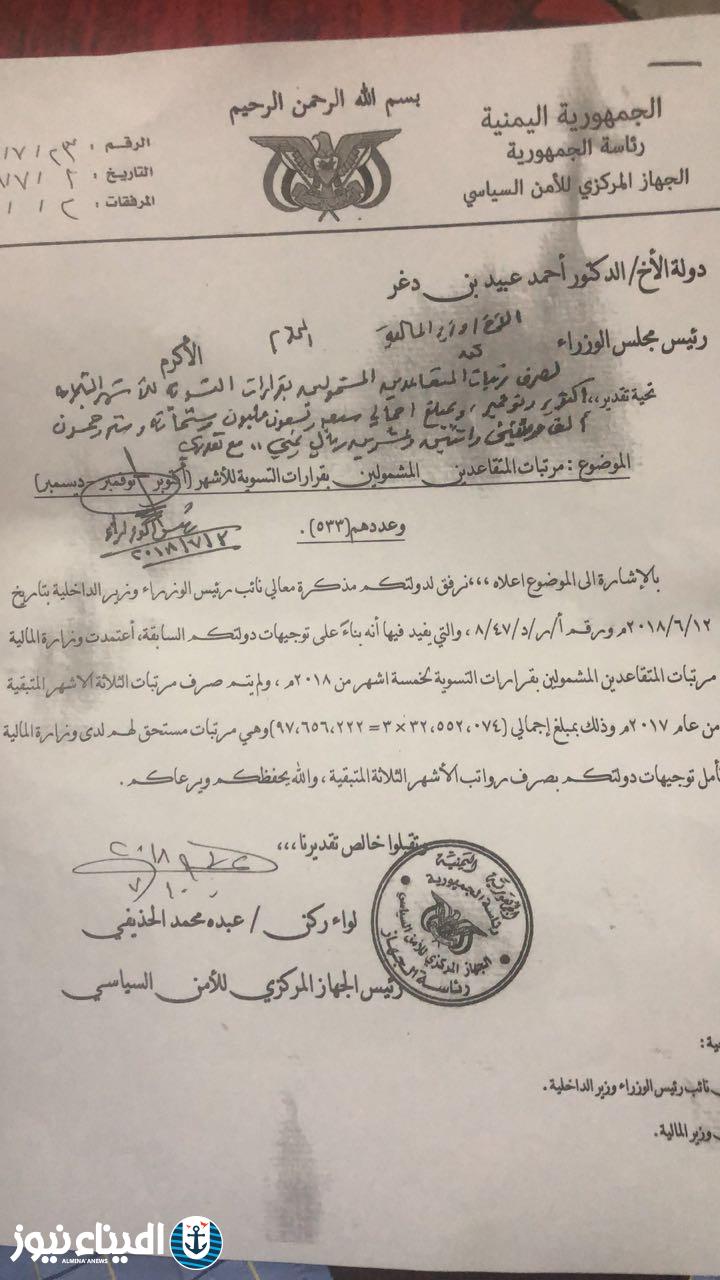 بسم الله الرحمن الرحيم
الجمهورية اليمنية
رئاسة الجمهورية
الجهاز المركزي للأمن السياسي
الرقم :
التاريخ :
المرفقات :
دولة الأخ/ الدكتور أحمد عبيد بن دغر
الأخ / وزير المالية المحترم
رئيس مجلس الوزراء الأكرم
لصرف مرتبات المتقاعدين المشمولين بقرارات التسوية للأشهر الثلاثة
تحية تقدير،،
أكتوبر ونوفمبر، وبمبلغ اجمالي سبعة وتسعون مليون وستمائة وستة وخمسون
ألف ومئتين واثنين وعشرين ريال يمني،، مع تقديري
الموضوع : مرتبات المتقاعدين المشمولين بقرارات التسوية للأشهر (أكتوبر - نوفمبر - ديسمبر)
وعددهم (٥٣٣) .
رئيس الوزراء
٢٠١٨/٧/٢
بالإشارة الى الموضوع اعلاه ،،،نرفق لدولتكم مذكرة معالي نائب رئيس الوزراء وزير الداخلية بتاريخ
٢٠١٨/٦/١٢م ورقم أ/ر/د/٨/٤٧، والتي يفيد فيها أنه بناءً على توجيهات دولتكم السابقة، أعتمدت وزارة المالية
مرتبات المتقاعدين المشمولين بقرارات التسوية لخمسة اشهر من ٢٠١٨م ، ولم يتم صرف مرتبات الثلاثة الاشهر المتبقية
من عام ٢٠١٧م وذلك بمبلغ إجمالي (٣٢،٥٥٢،٠٧٤ × ٣ = ٩٧،٦٥٦،٢٢٢)وهي مرتبات مستحق لهم لدى وزارة المالية
نأمل توجيهات دولتكم بصرف رواتب الأشهر الثلاثة المتبقية ، والله يحفظكم ويرعاكم .
وتقبلوا خالص تقديرنا،،،
لواء ركن / عبده محمد الحذيفي
رئيس الجهاز المركزي للأمن السياسي
الجمهورية اليمنية
رئاسة الجمهورية
الجهاز المركزي للأمن السياسي
رئاسة الجهاز
نائب رئيس الوزراء وزير الداخلية .
وزير المالية .
الميناء نيوز
ALMINA'ANEWS